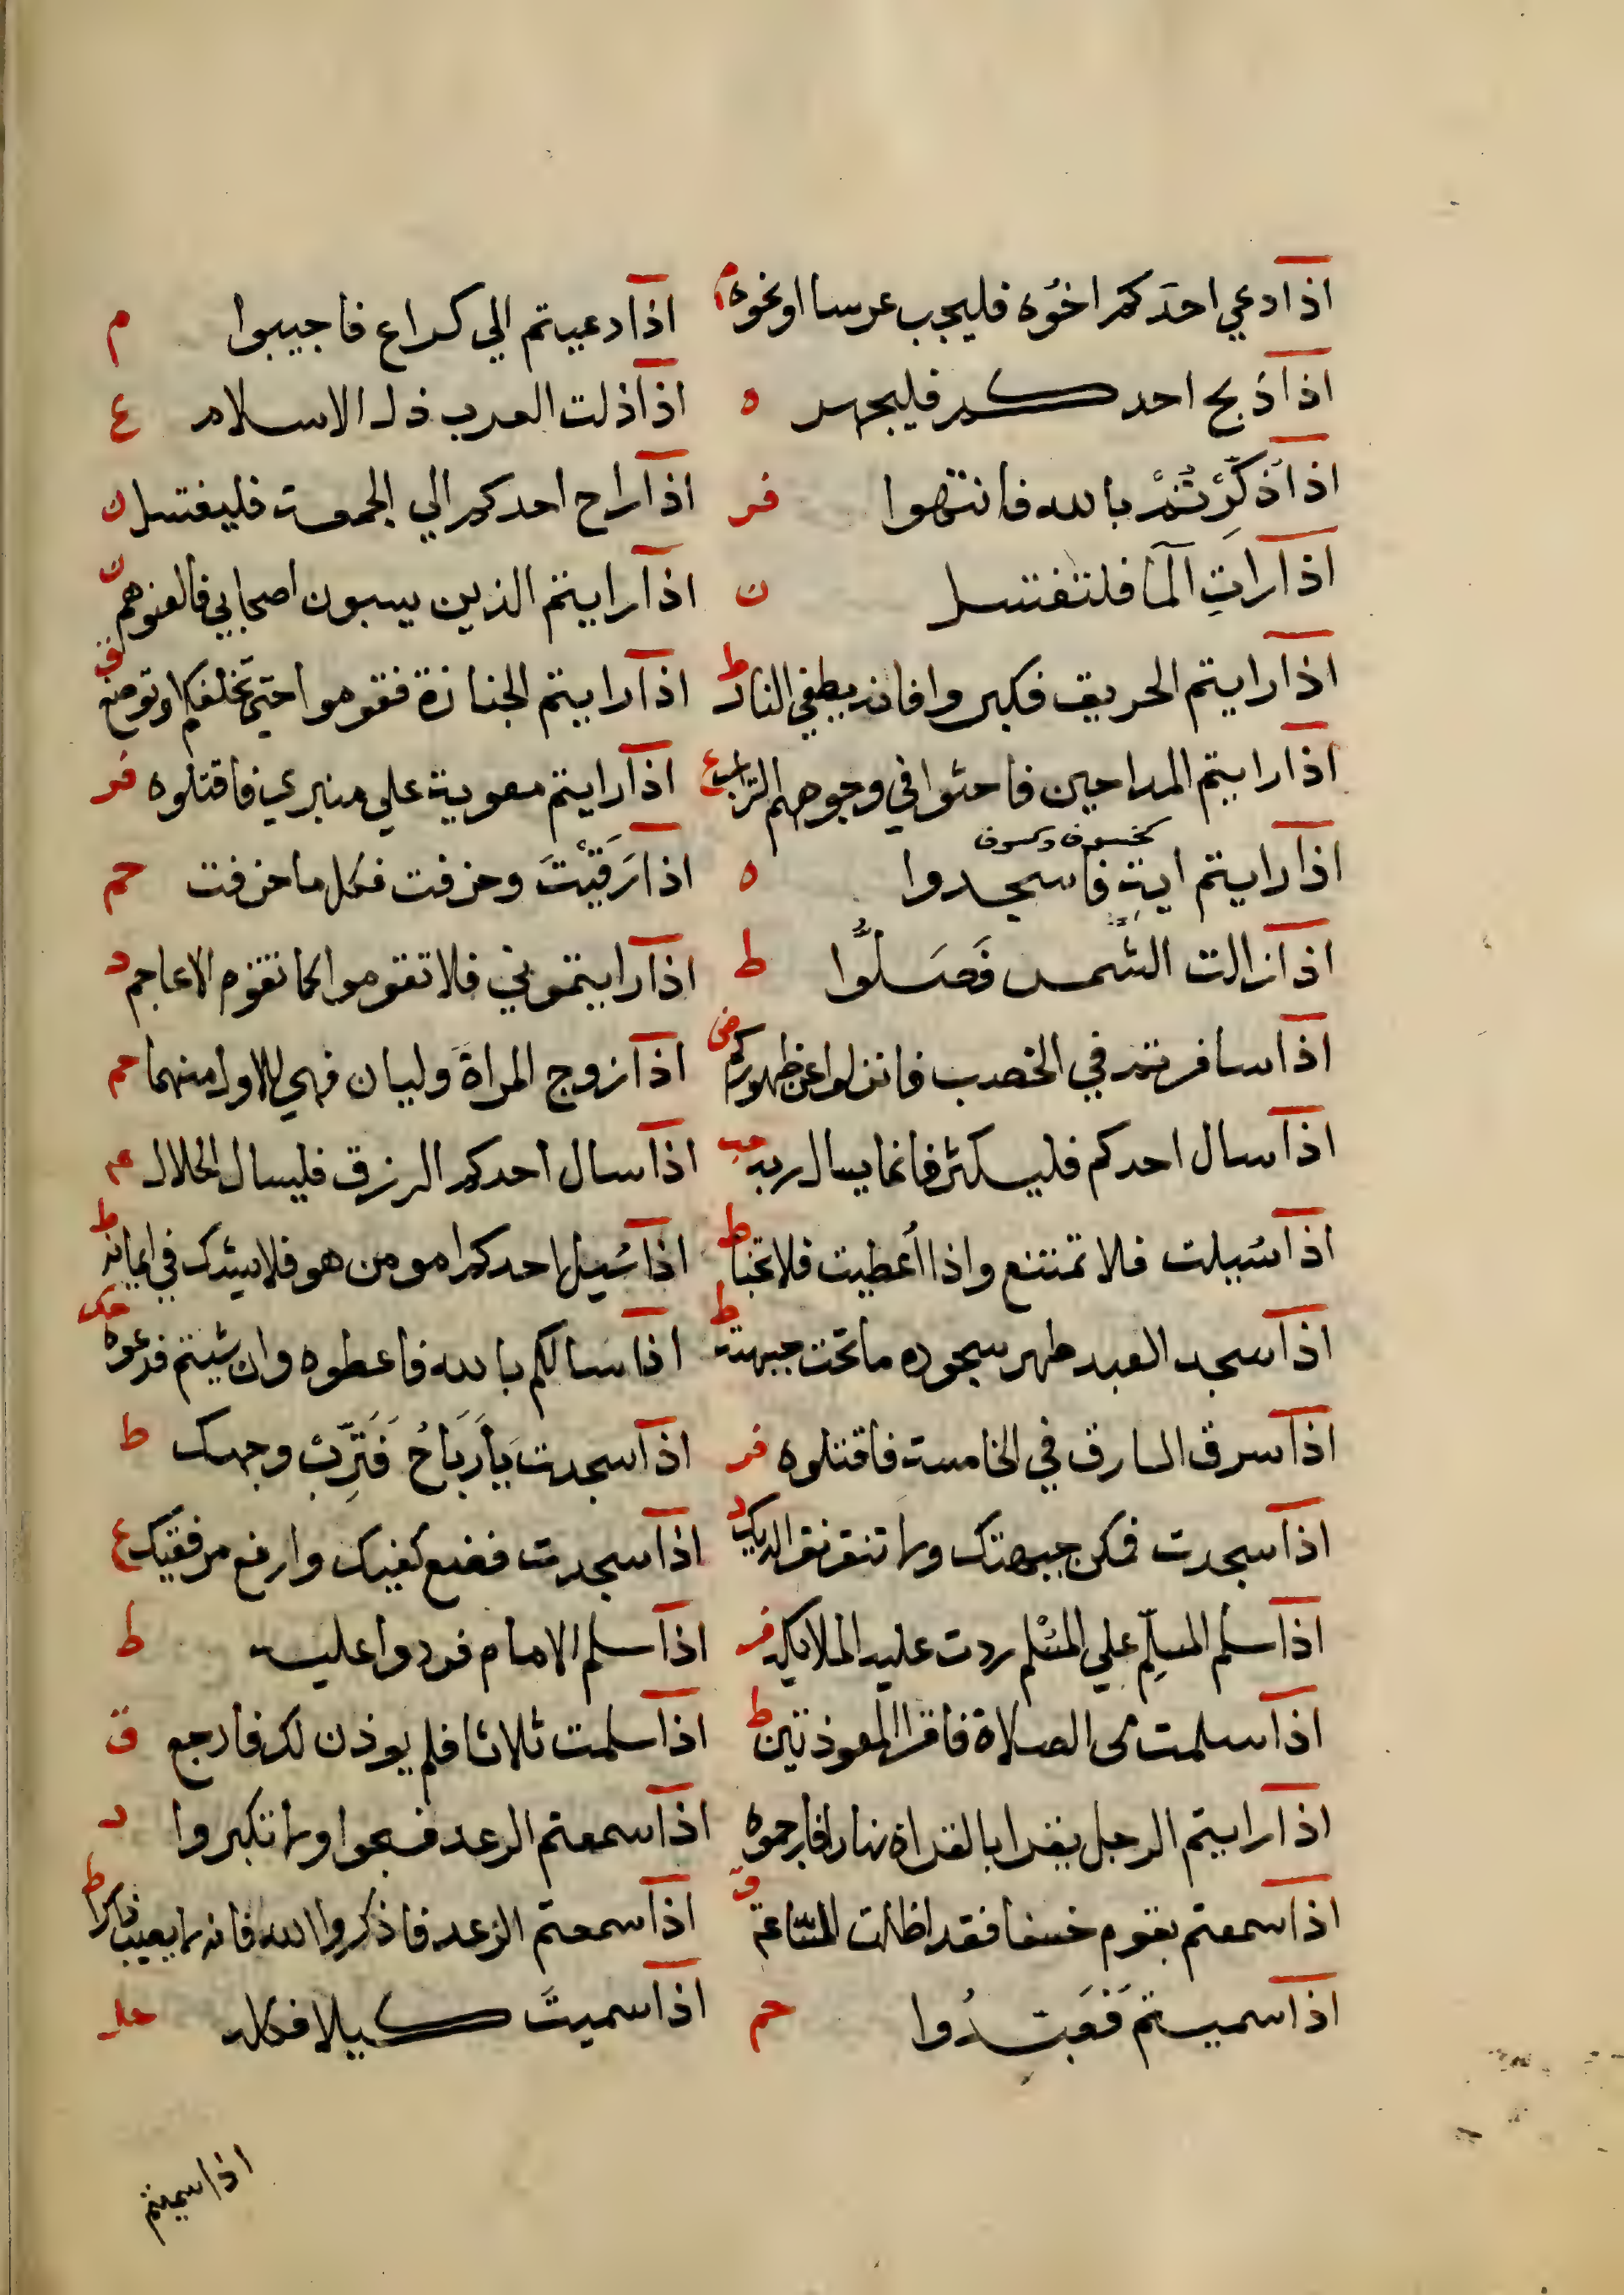 اذا دعي احدكم اخوه فليجب عرسا او نحوه م اذا دعيتم الي كراع فاجيبوا م
اذا ذبح احدكم فليجهز ه اذا ذلت العرب ذل الاسلام ع
اذا ذُكِّرْتُمْ بالله فانتهوا فر اذا راح احدكم الي الجمعة فليغتسل ن
اذا راتِ الما فلتغتسل ن اذا رايتم الذين يسبون اصحابي فالعنوهم ت
اذا رايتم الحريق فكبروا فانه يطفي النار ط اذا رايتم الجنازة فقوموا حتي تخلفكم او توضع ق
اذا رايتم المداحين فاحثوا في وجوههم التراب ع اذا رايتم معوية علي منبري فاقتلوه فر
اذا رايتم اية فاسجدوا كخسوف وكسوف ه اذا رَمَيْتَ وخزقت فكل ما خزقت حم
اذا زالت الشَّمس فَصَلُّوا ط اذا رايتموني فلا تقوموا كما تقوم الاعاجم د
اذا سافرتم في الخصب فانزلوا عن ظهوركم ض اذا زوج المراة وليان فهي للاول منهما حم
اذا سال احدكم فليكثر فانما يسال ربه حب اذا سال احدكم الرزق فليسال الحلال
اذا سُيلت فلا تمتنع واذا أعطيت فلا تخبا ط اذا سُيل احدكم امومن هو فلا يشك في ايمانه ط
اذا سجد العبد طهر سجوده ما تحت جبهته ط اذا سالكم بالله فاعطوه وان شيتم فدعوه حك
اذا سرق السارق في الخامسة فاقتلوه فر اذا سجدت يَا رَبَاحُ فَتَرِّبْ وجهك ط
اذا سجدت فمكن جبهتك ولا تنقر نقر الديك د اذا سجدت فضع كفيك وارفع مرفقيك ع
اذا سلم المسلِّم علي المسْلم ردت عليه الملايكه فر اذا سلم الامام فردوا عليه ط
اذا سلمت من الصلاة فاقرا المعوذتين ط اذا سلمت ثلاثا فلم يوذن لك فارجع ق
اذا رايتم الرجل يقرا بالقراة نهارا فارجموه اذا سمعتم الرعد فسبحوا ولا تكبروا د
اذا سمعتم بقوم خسفا فقد اظلت السّاعة ق اذا سمعتم الرعد فاذكروا الله فانه لا يصيب ذاكرا ط
اذا سميتم فَعَبِّدُوا حم اذا سميتَ كيلا فكله حل
اذا سميتم